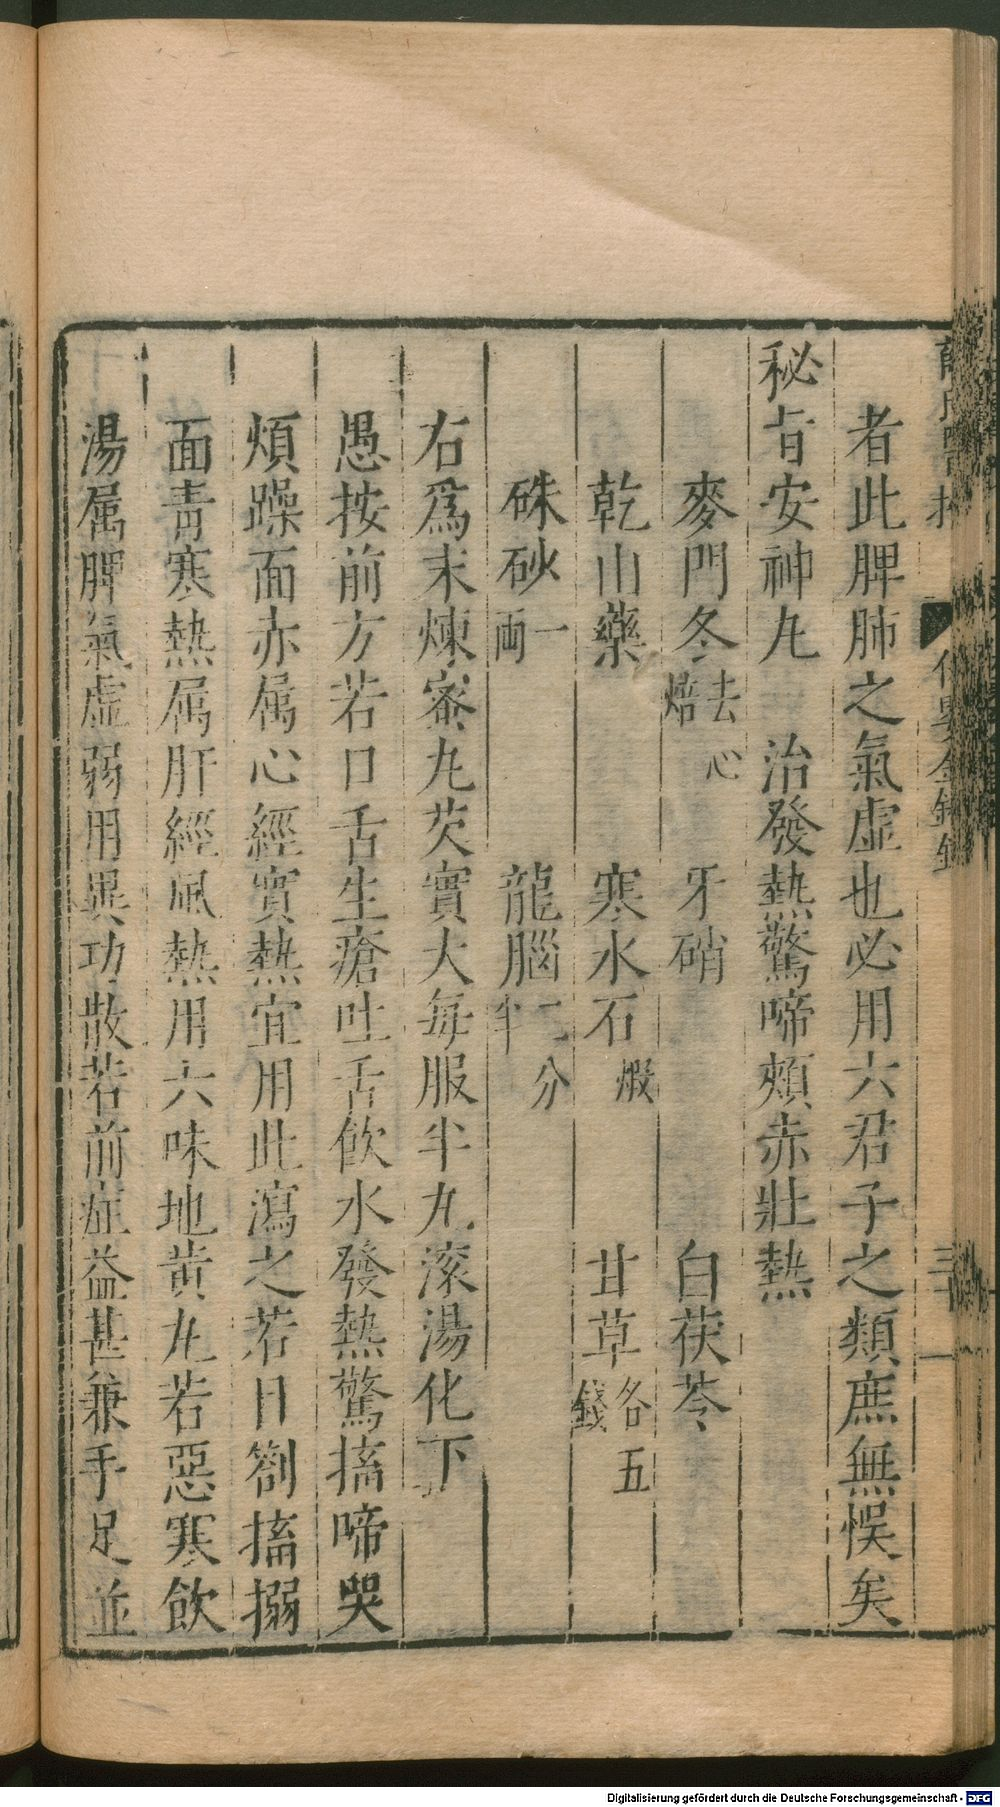 者此脾肺之氣虛也必用六君子之類庶無悞矣
秘旨安神丸　治發熱驚啼頰赤壯熱
麥門冬去心焙　牙硝　白茯苓
乾山藥　寒水石煅　甘草各五錢
硃砂一両　龍腦一分半
右爲末煉蜜丸芡實大每服半丸滚湯化下
愚按前方若口舌生瘡吐舌飲水發熱驚搐啼哭
煩躁面赤属心經實熱宜用此瀉之若目劄搐搦
面青寒熱属肝經風熱用六味地黄丸若惡寒飲
湯属脾氣虛弱用異功散若前症益甚兼手足並
Digitalisierung gefördert durch die Deutsche Forschungsgemeinschaft - DFG